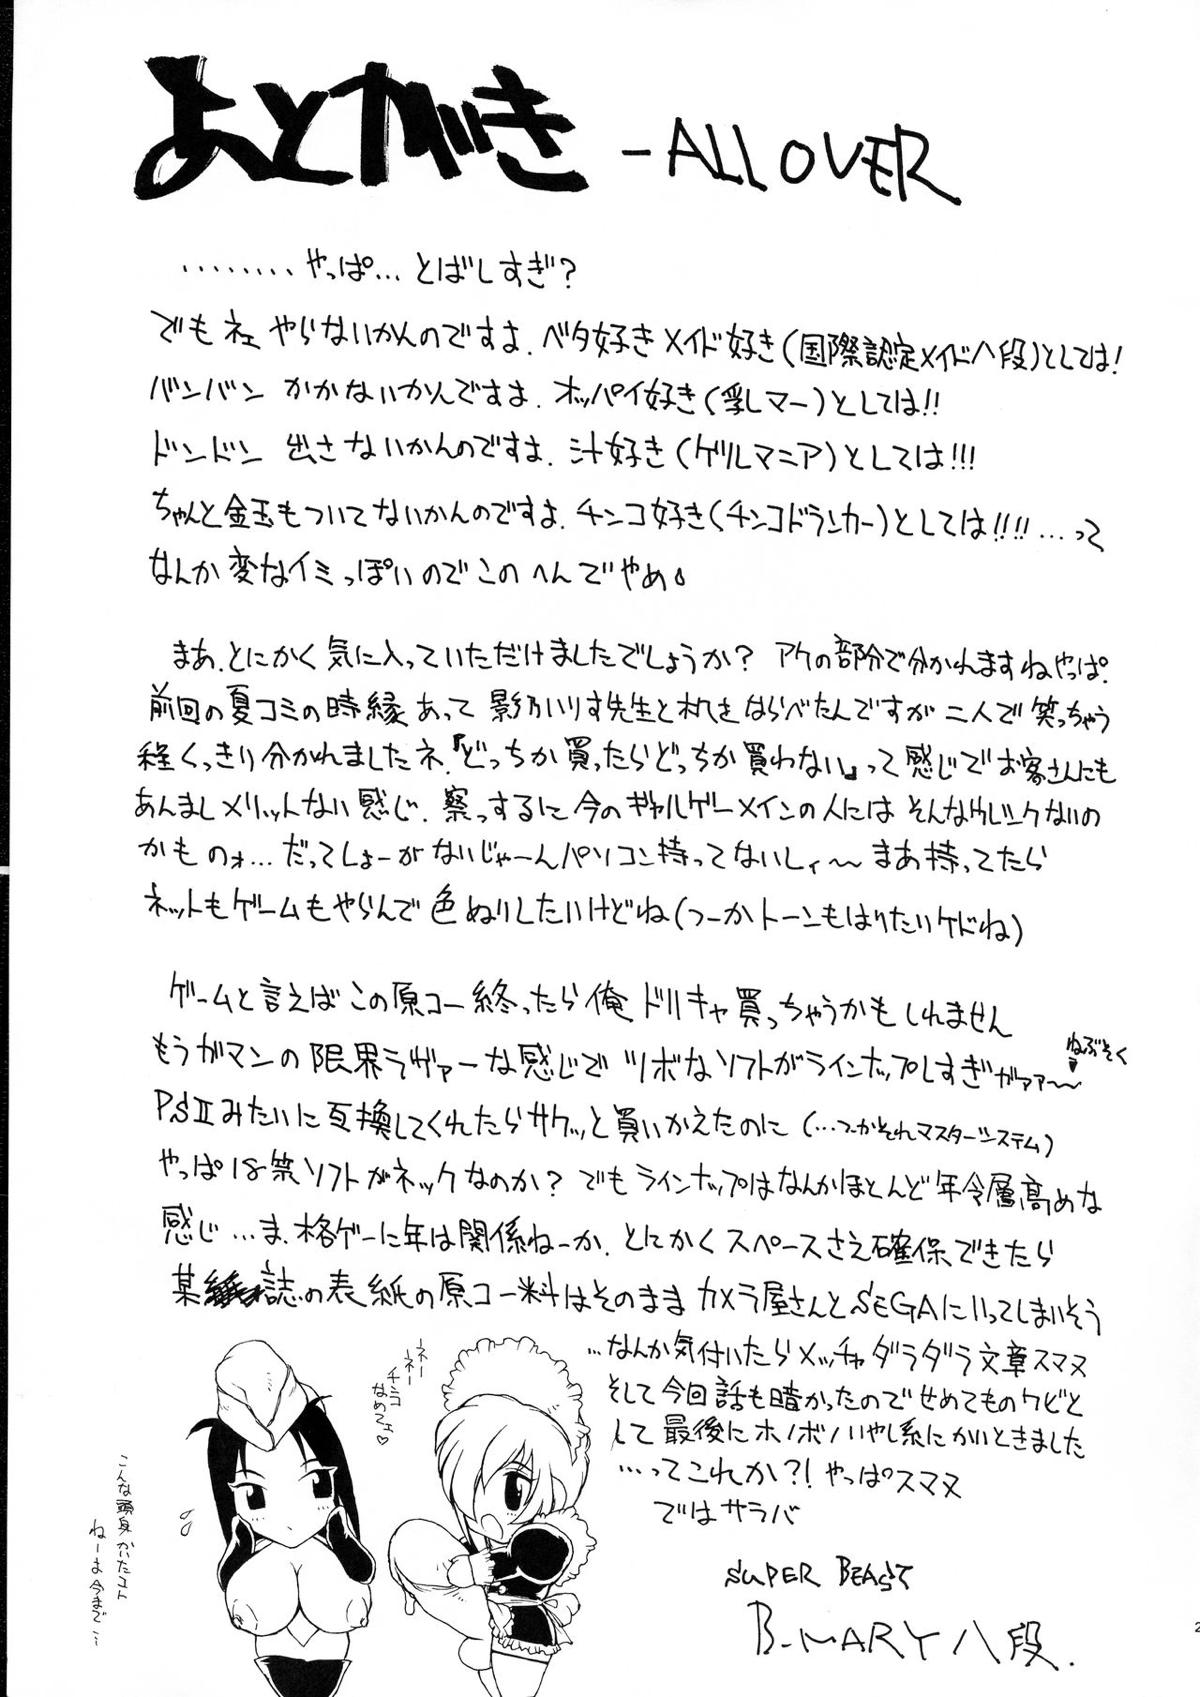 あとがき -ALL OVER
........やっぱ…とばしすぎ?
でもネェ やらないかんのですよ.ベタ好きメイド好き(国際認定メイド八段)としては!
バンバン かかないかんですよ.オッパイ好き(乳しマー)としては!!
ドンドン 出さないかんのですよ.汁好き(ゲリルマニア)としては!!!
ちゃんと金玉もついてないかんのですよ.チンコ好き(チンコドランカー)としては!!!!…って
なんか変なイミっぽいのでこのへんでやめ。
まあ.とにかく気に入っていただけましたでしょうか? アケの部分で分かれますねやっぱ.
前回の夏コミの時縁あって影乃いりす先生と机をならべたんですが二人で笑っちゃう
程くっきり分かれましたネ.『どっちか買ったらどっちか買わない』って感じでお客さんにも
あんましメリットない感じ.察っするに今のギャルゲーメインの人には そんなウレシクないの
かものォ…だってしょーがないじゃーんパソコン持ってないしィ〜まあ持ってたら
ネットもゲームもやらんで色ぬりしたいけどね(つーかトーンもはりたいケドね)
ゲームと言えばこの原コー終ったら俺ドリキャ買っちゃうかもしれません
もうガマンの限界ラヴァーな感じでツボなソフトがラインナップしすぎがァァ〜
ねぶそく
PSⅡみたいに互換してくれたらサクッと買いかえたのに(…つーかそれマスターシステム)
やっぱ18禁ソフトがネックなのか?でもラインナップはなんかほとんど年令層高めな
感じ…ま.格ゲーに年は関係ねーか.とにかくスペースさえ確保できたら
某誌の表紙の原コー料はそのまま カメラ屋さんとSEGAにいってしまいそう
…なんか気付いたらメッチャダラダラ文章スマヌ
そして今回話も暗かったのでせめてものクビと
して最後にホノボノいやし系にかいときました
…ってこれか?!やっぱスマヌ
ではサラバ
SUPER BEAST
B-MARY 八段.
ネー
ネー
チンコ
なめてェ♡
こんな頭身かいたコト
ねーよ今まで…
2